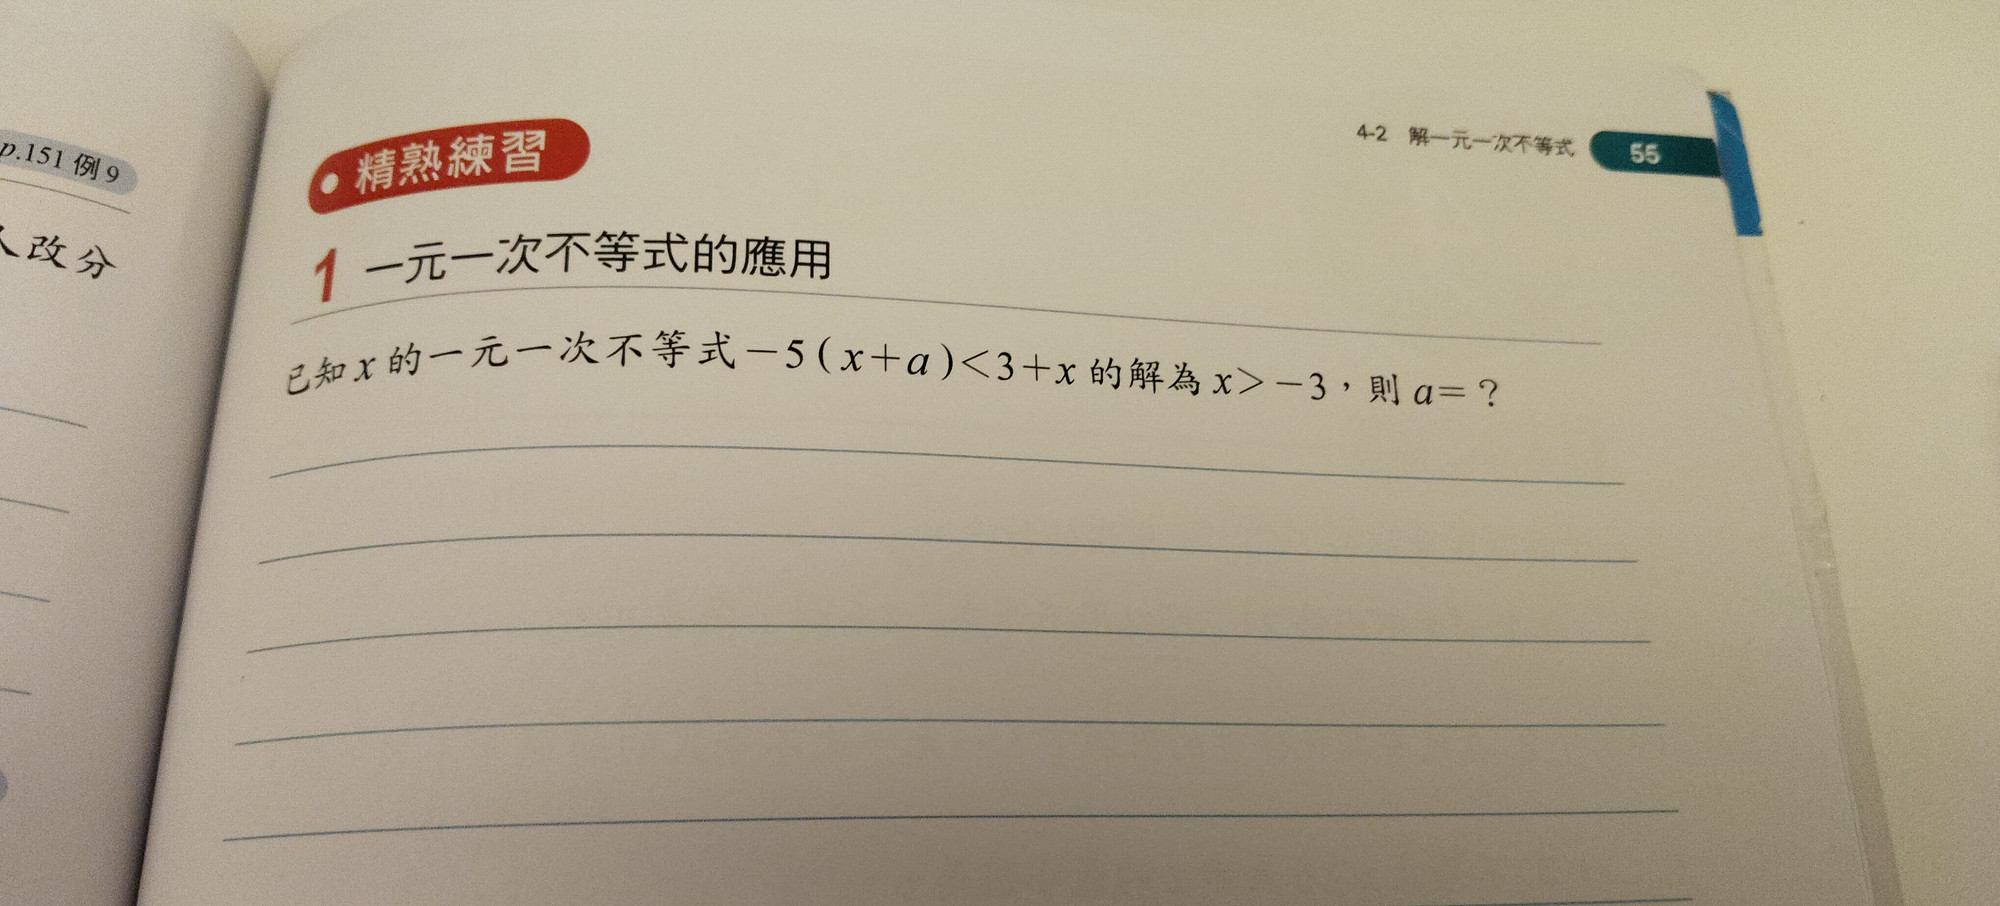 p.151 例 9
改分
精熟練習
4-2 解一元一次不等式 55
1 一元一次不等式的應用
已知 x 的一元一次不等式－5（x＋a）＜3＋x 的解為 x＞－3，則 a＝？